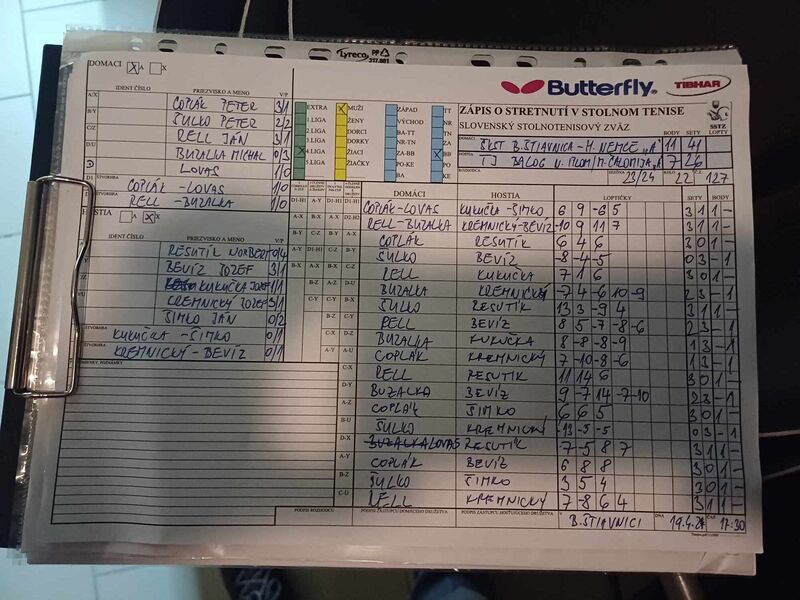 Lyreco PP
317.001
Butterfly
TIBHAR
DOMÁCI X A X
IDENT ČÍSLO PRIEZVISKO A MENO V/P
A/X COPLÁK PETER 3/1
B/Y ŠULKO PETER 2/2
C/Z RELL JÁN 3/1
D/U BUZALKA MICHAL 0/3
LOVAS 1/0
ŠTVORHRA
COPLÁK - LOVAS 1/0
RELL - BUZALKA 1/0
HOSTIA A X X
IDENT ČÍSLO PRIEZVISKO A MENO V/P
RESUTÍK NORBERT 0/4
BEVÍZ JOZEF 3/1
KUKUČKA JOZEF 1/1
KREMNICKÝ JOZEF 3/1
ŠIMKO JÁN 0/2
ŠTVORHRA
KUKUČKA - ŠIMKO 0/1
ŠTVORHRA
KREMNICKÝ - BEVÍZ 0/1
EXTRA
1.LIGA
2.LIGA
3.LIGA
X 4.LIGA
5.LIGA
X MUŽI
ŽENY
DORCI
DORKY
ŽIACI
ŽIAČKY
ZÁPAD
VÝCHOD
BA-TT
NR-TN
X ZA-BB
PO-KE
TT
NR
TN
ZA
BB
PO
KE
BA
ZÁPIS O STRETNUTÍ V STOLNOM TENISE
SLOVENSKÝ STOLNOTENISOVÝ ZVÄZ
SSTZ
BODY SETY LOPTY
DOMÁCI ŠKST B. ŠTIAVNICA - H. NEMCE "A" 11 41
HOSTIA TJ BALOG N. IPLOM/M. ČALOMIJA "A" 7 26
ROZHODCA SEZÓNA 23/24 KOLO 22 Č. 127
DOMÁCI HOSTIA LOPTIČKY SETY BODY
COPLÁK - LOVAS KUKUČKA - ŠIMKO 6 9 -6 5 3 1 1 -
RELL - BUZALKA KREMNICKÝ - BEVÍZ -10 9 11 7 3 1 1 -
COPLÁK RESUTÍK 6 4 6 3 0 1 -
ŠULKO BEVÍZ -8 -4 -5 0 3 - 1
RELL KUKUČKA 7 1 6 3 0 1 -
BUZALKA KREMNICKÝ -7 4 -6 10 -9 2 3 - 1
ŠULKO RESUTÍK 13 3 -9 4 3 1 1 -
RELL BEVÍZ 8 5 -7 -8 -6 2 3 - 1
BUZALKA KUKUČKA 8 -8 -8 -9 1 3 - 1
COPLÁK KREMNICKÝ -7 -10 8 -6 1 3 - 1
RELL RESUTÍK 11 14 6 3 0 1 -
BUZALKA BEVÍZ 9 -7 14 -7 -10 2 3 - 1
COPLÁK ŠIMKO 6 6 5 3 0 1 -
ŠULKO KREMNICKÝ -13 -5 -5 0 3 - 1
BUZALKA LOVAS RESUTÍK -7 -5 8 7 3 1 1 -
COPLÁK BEVÍZ 6 8 8 3 0 1 -
ŠULKO ŠIMKO 3 5 4 3 0 1 -
RELL KREMNICKÝ 7 -8 6 4 3 1 1 -
PODPIS ROZHODCU PODPIS ZÁSTUPCU DOMÁCEHO DRUŽSTVA PODPIS ZÁSTUPCU HOSŤUJÚCEHO DRUŽSTVA V B. ŠTIAVNICI DŇA 19.4.24 ČAS 17:30